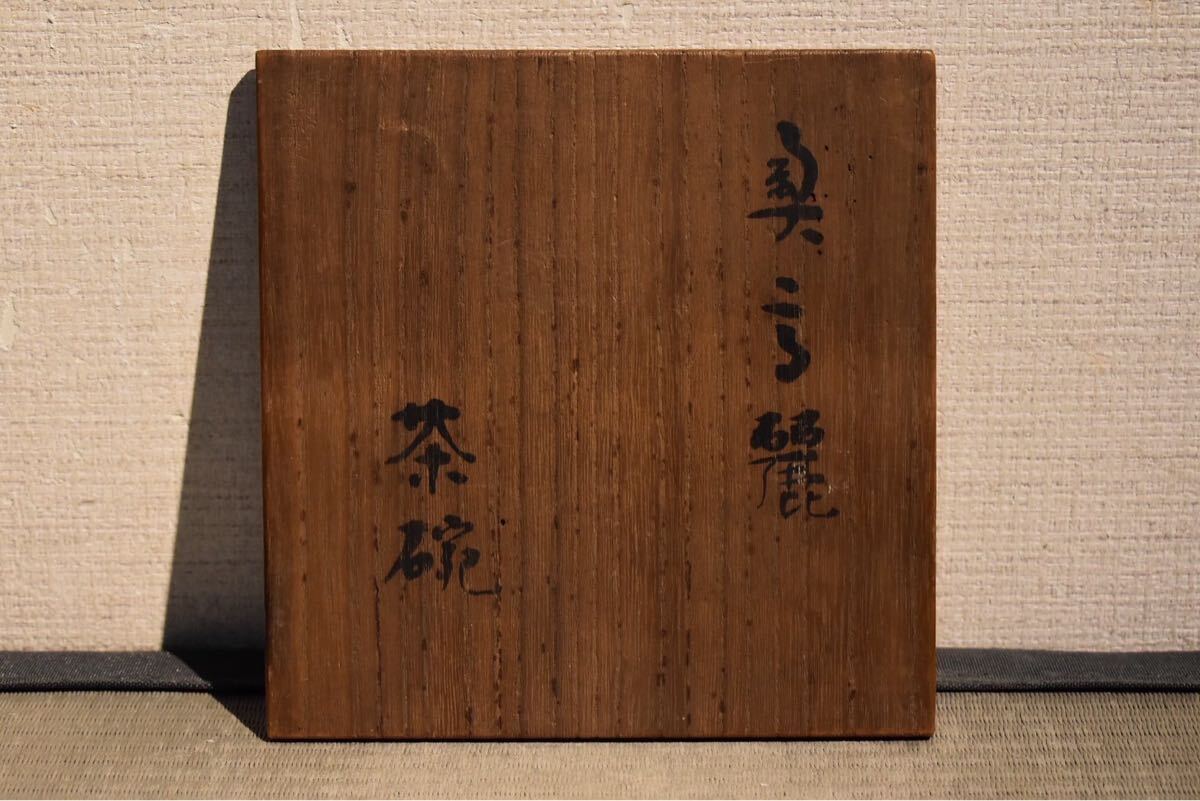 奥高麗
茶碗